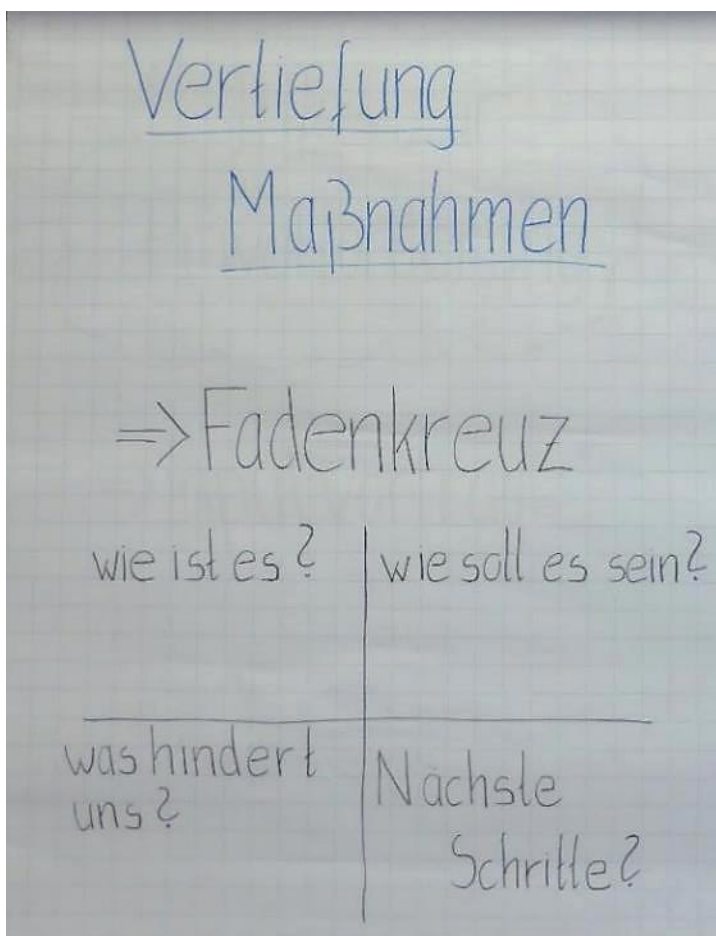 Vertiefung
Maßnahmen
=> Fadenkreuz
wie ist es?
wie soll es sein?
was hindert
uns?
Nächste
Schritte?